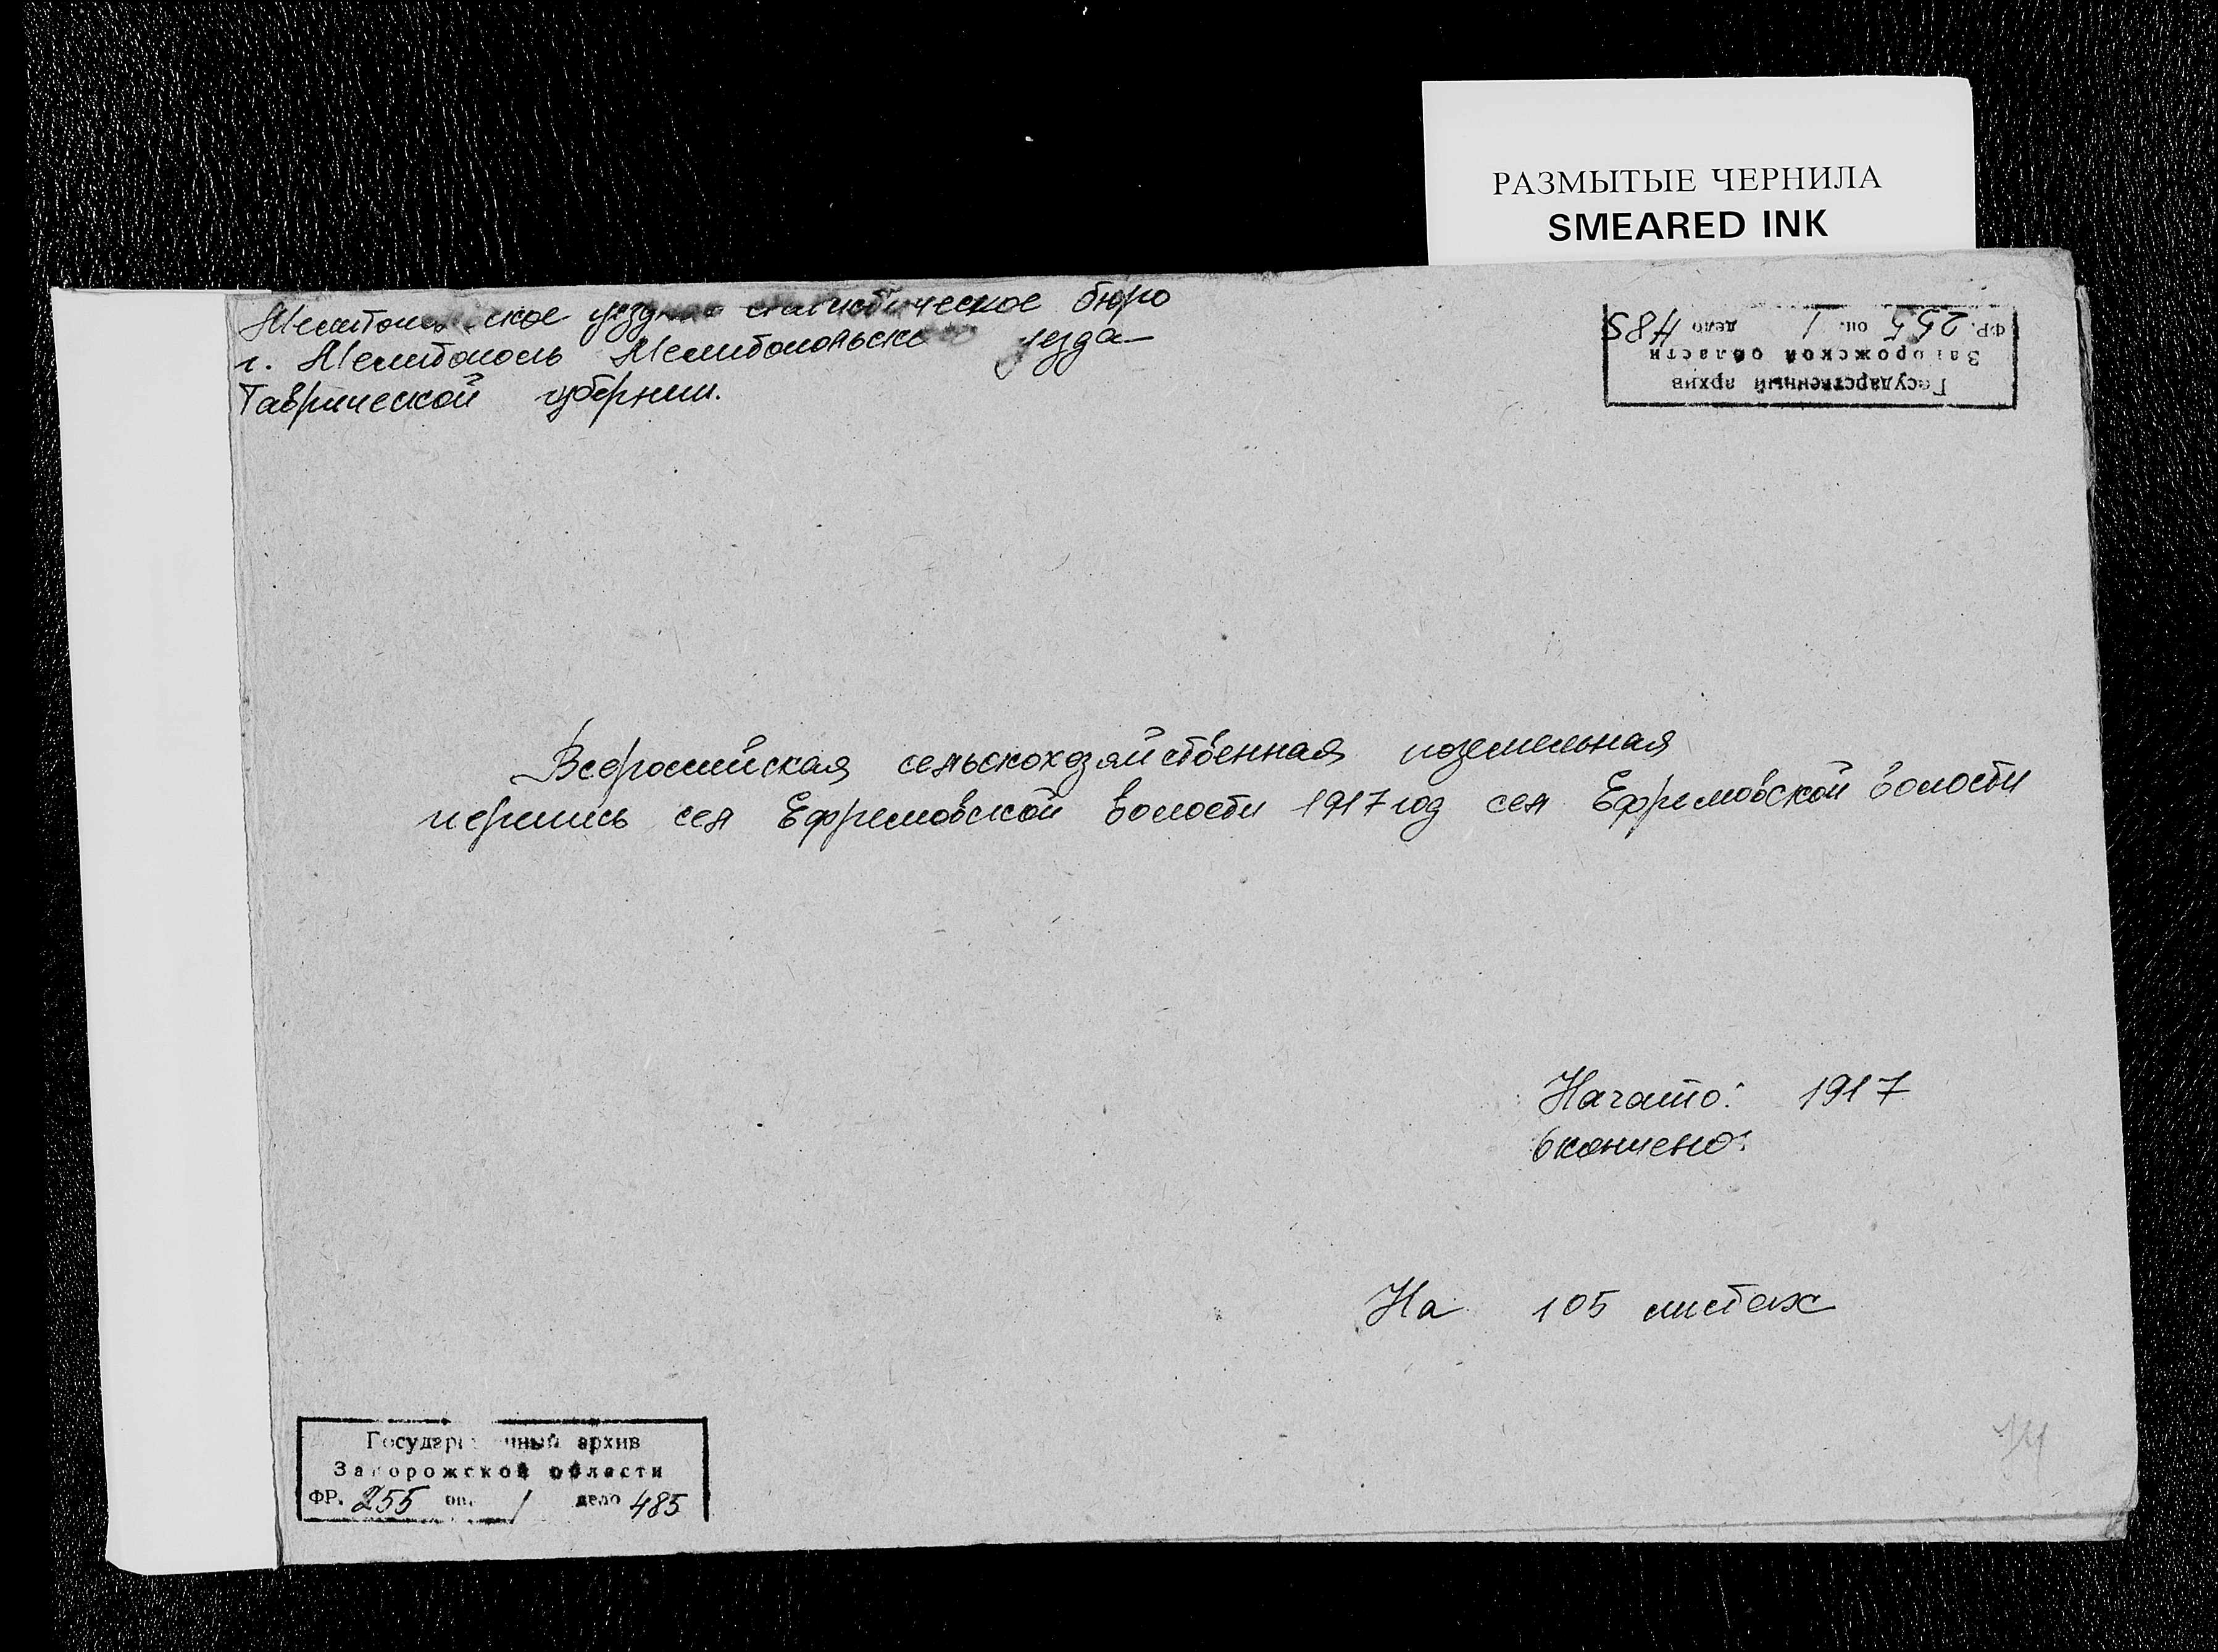 РАЗМЫТЫЕ ЧЕРНИЛА
SMEARED INK
Мелитопольское уездное статистическое бюро
г. Мелитополь Мелитопольского уезда
Таврической губернии.
Государственный архив
Запорожской области
ФР. 255 оп. 1 дело 485
Всероссийская сельскохозяйственная поземельная
перепись сел Ефремовской волости 1917 год сел Ефремовской волости
Начато: 1917
Окончено:
На 105 листах
Государственный архив
Запорожской области
ФР. 255 оп. 1 дело 485